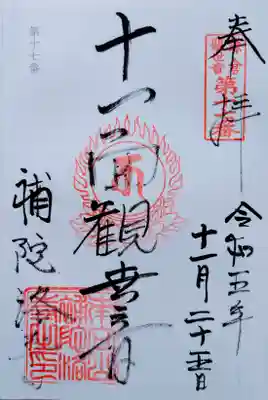 奉拝
鎌倉
観世音
第十七番
令和五年
十一月二十五日
十一面観世音
補陀洛寺
第十七番